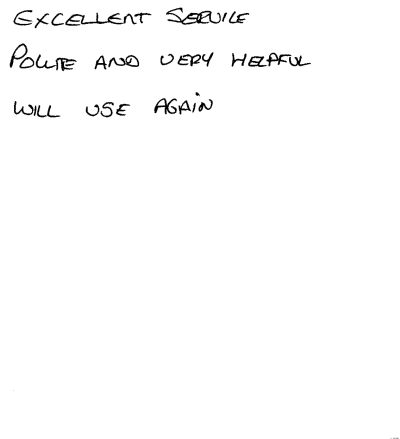 EXCELLENT SERVICE
POLITE AND VERY HELPFUL
WILL USE AGAIN